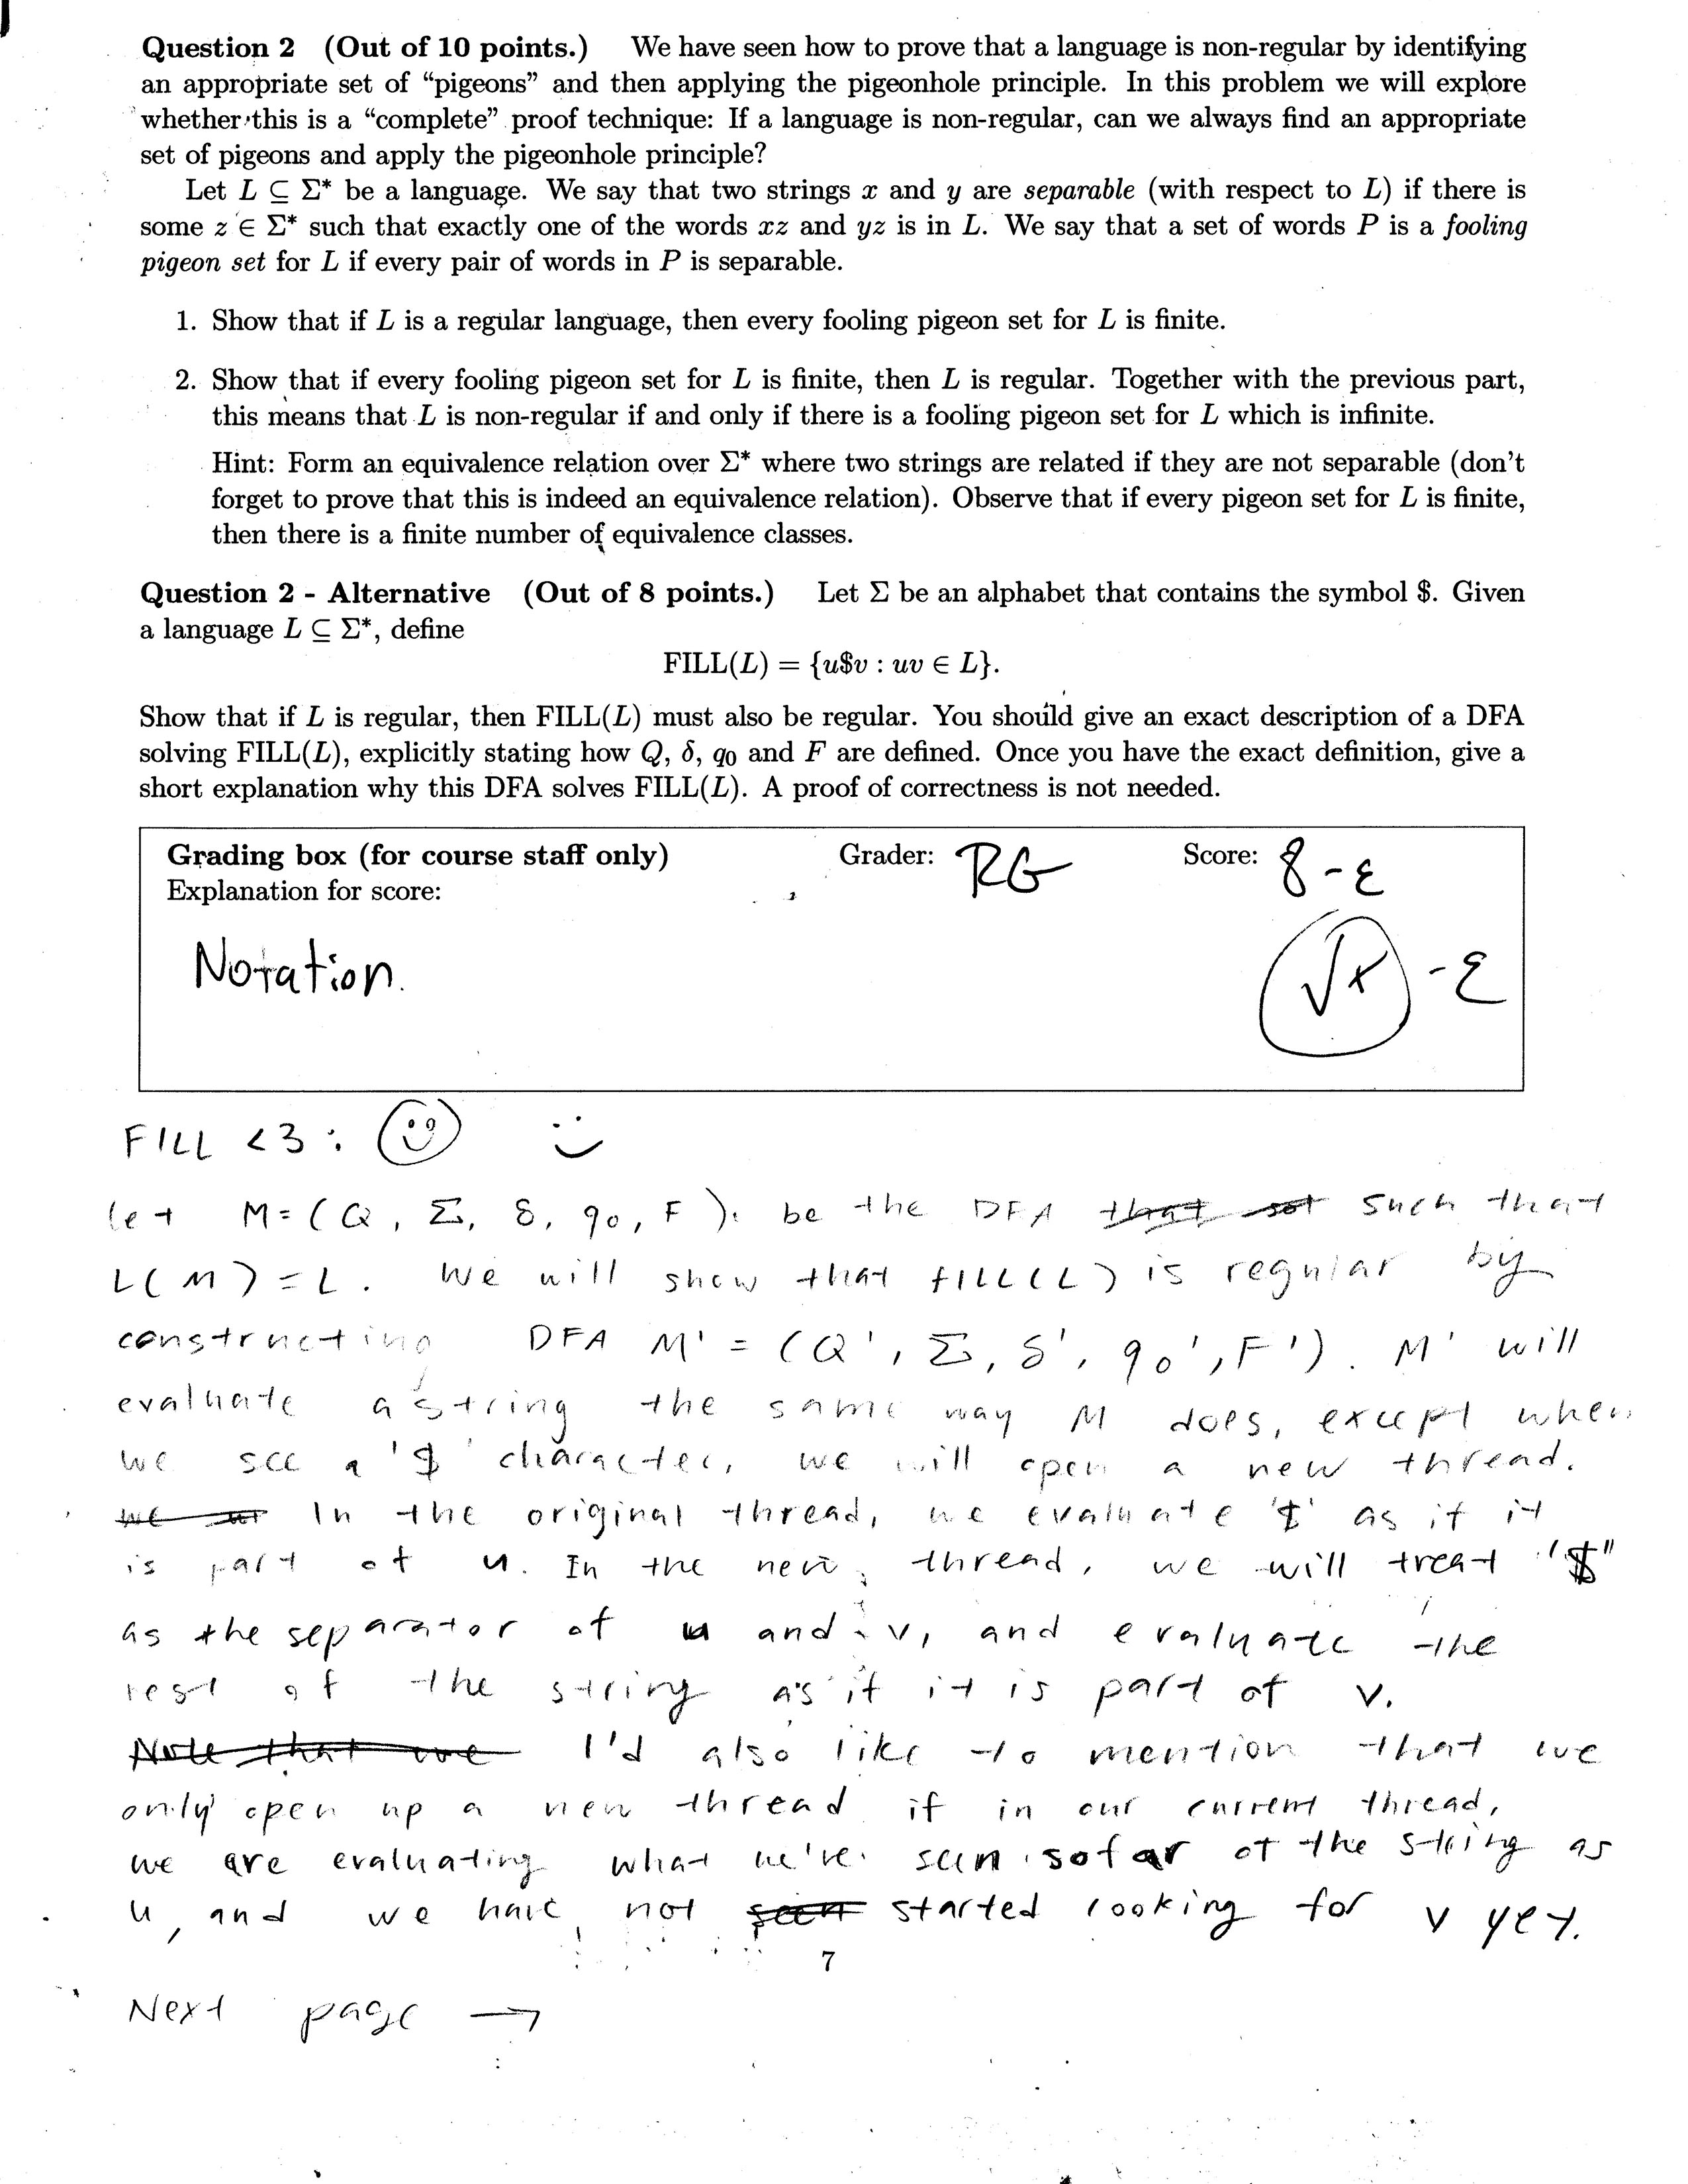 Question 2 (Out of 10 points.) We have seen how to prove that a language is non-regular by identifying
an appropriate set of “pigeons” and then applying the pigeonhole principle. In this problem we will explore
whether this is a “complete” proof technique: If a language is non-regular, can we always find an appropriate
set of pigeons and apply the pigeonhole principle?
Let L ⊆ Σ* be a language. We say that two strings x and y are separable (with respect to L) if there is
some z ∈ Σ* such that exactly one of the words xz and yz is in L. We say that a set of words P is a fooling
pigeon set for L if every pair of words in P is separable.
1. Show that if L is a regular language, then every fooling pigeon set for L is finite.
2. Show that if every fooling pigeon set for L is finite, then L is regular. Together with the previous part,
this means that L is non-regular if and only if there is a fooling pigeon set for L which is infinite.
Hint: Form an equivalence relation over Σ* where two strings are related if they are not separable (don’t
forget to prove that this is indeed an equivalence relation). Observe that if every pigeon set for L is finite,
then there is a finite number of equivalence classes.
Question 2 - Alternative (Out of 8 points.) Let Σ be an alphabet that contains the symbol $. Given
a language L ⊆ Σ*, define
FILL(L) = {u$v : uv ∈ L}.
Show that if L is regular, then FILL(L) must also be regular. You should give an exact description of a DFA
solving FILL(L), explicitly stating how Q, δ, q₀ and F are defined. Once you have the exact definition, give a
short explanation why this DFA solves FILL(L). A proof of correctness is not needed.
Grading box (for course staff only) Grader: RG Score: 8-ε
Explanation for score:
Notation. √x -ε
FILL <3 : :)
let M = (Q, Σ, δ, q0, F). be the DFA that sot such that
L(M) = L. We will show that FILL(L) is regular by
constructing DFA M' = (Q', Σ, δ', q0', F'). M' will
evaluate a string the same way M does, except when
we see a '$' character, we will open a new thread.
we In the original thread, we evaluate '$' as if it
is part of u. In the new thread, we will treat "$"
as the separator of u and v, and evaluate the
rest of the string as if it is part of v.
Note that we I'd also like to mention that we
only open up a new thread if in our current thread,
we are evaluating what we've seen so far of the string as
u, and we have not seen started looking for v yet.
7
Next page →